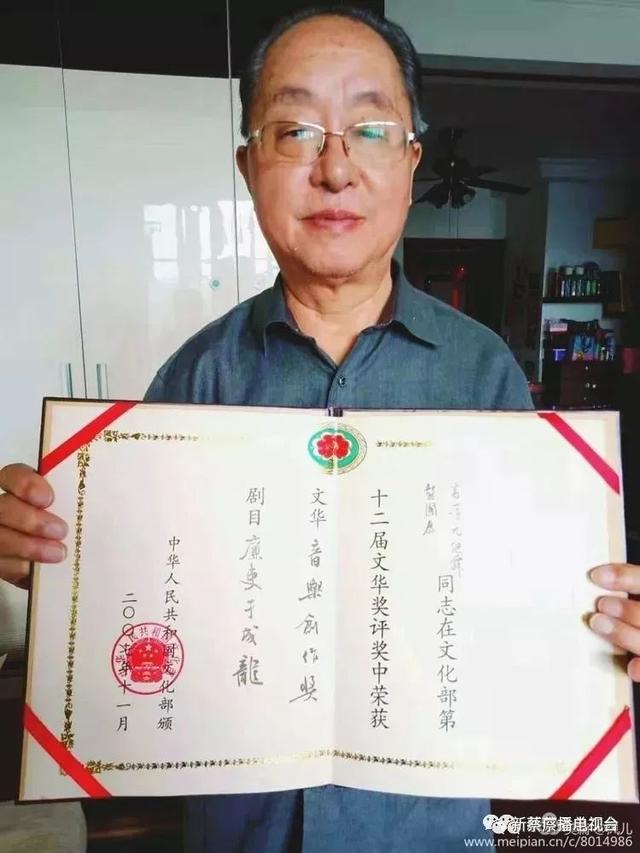 同志在文化部第
十二届文华奖评奖中荣获
文华音樂創作奖
剧目廉吏于成龍
中华人民共和国文化部颁
二〇〇七年十一月
新蔡广播电视台
www.meipian.cn/c/8014986